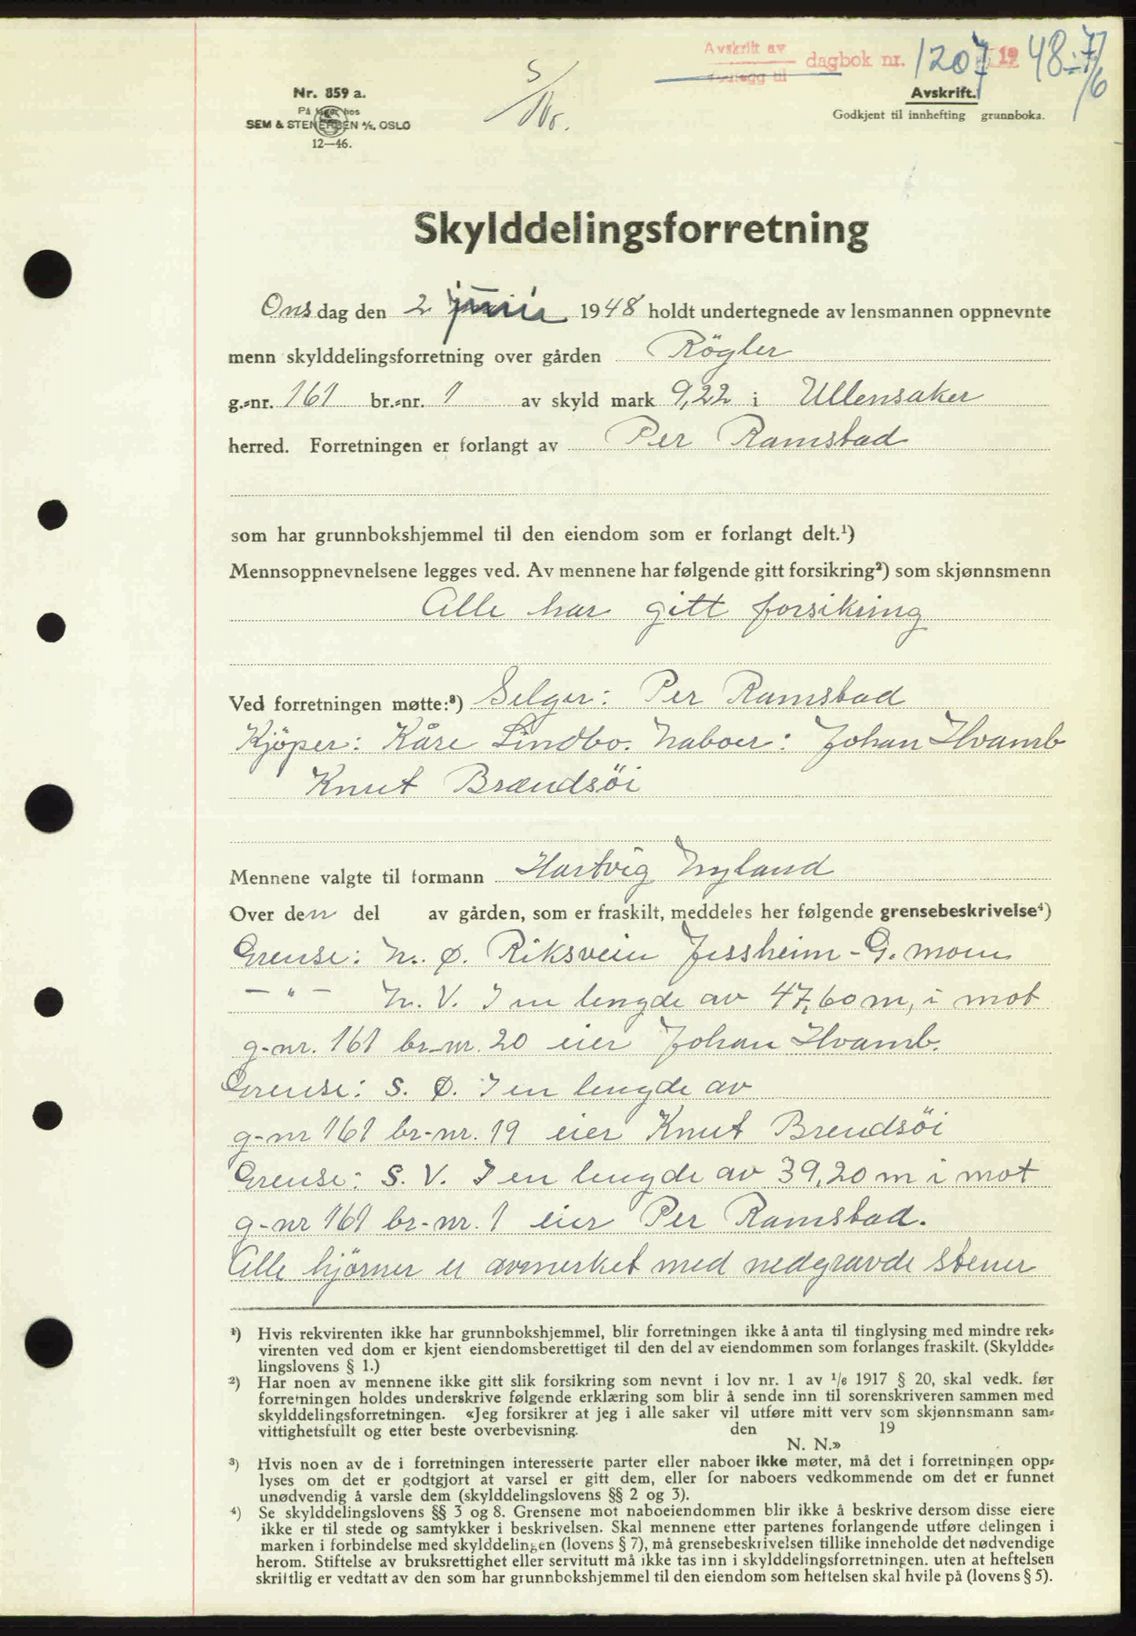 Avskrift av
dagbok nr. 1207 1948-7/6
Nr. 859 a.
På lager hos
SEM & STENERSEN A/S. OSLO
12—46.
Avskrift.
Godkjent til innhefting grunnboka.
Skylddelingsforretning
Onsdag den 2 juni 1948 holdt undertegnede av lensmannen oppnevnte
menn skylddelingsforretning over gården Rögler
g.-nr. 161 br.-nr. 1 av skyld mark 9,22 i Ullensaker
herred. Forretningen er forlangt av Per Ramstad
som har grunnbokshjemmel til den eiendom som er forlangt delt.¹)
Mennsoppnevnelsene legges ved. Av mennene har følgende gitt forsikring²) som skjønnsmenn
Alle har gitt forsikring
Ved forretningen møtte:³) Selger: Per Ramstad
Kjöper: Kåre Lindbo. Naboer: Johan Hvamb
Knut Brændsöi
Mennene valgte til formann Hartvig Nyland
Over den del av gården, som er fraskilt, meddeles her følgende grensebeskrivelse⁴)
Grense: N. Ø. Riksveien Jessheim - G. moen
— " — N. V. I en lengde av 47,60 m, i mot
g-nr. 161 br-nr. 20 eier Johan Hvamb.
Grense: S. Ø. I en lengde av
g-nr 161 br-nr. 19 eier Knut Brendsöi
Grense: S. V. I en lengde av 39,20 m i mot
g-nr 161 br-nr. 1 eier Per Ramstad.
Alle hjörner er avmerket med nedgravde stener
¹) Hvis rekvirenten ikke har grunnbokshjemmel, blir forretningen ikke å anta til tinglysing med mindre rek-
virenten ved dom er kjent eiendomsberettiget til den del av eiendommen som forlanges fraskilt. (Skyldde-
lingslovens § 1.)
²) Har noen av mennene ikke gitt slik forsikring som nevnt i lov nr. 1 av 1/6 1917 § 20, skal vedk. før
forretningen holdes underskrive følgende erklæring som blir å sende inn til sorenskriveren sammen med
skylddelingsforretningen. «Jeg forsikrer at jeg i alle saker vil utføre mitt verv som skjønnsmann sam-
vittighetsfullt og etter beste overbevisning. den 19
N. N.»
³) Hvis noen av de i forretningen interesserte parter eller naboer ikke møter, må det i forretningen opp-
lyses om det er godtgjort at varsel er gitt dem, eller for naboers vedkommende om det er funnet
unødvendig å varsle dem (skylddelingslovens §§ 2 og 3).
⁴) Se skylddelingslovens §§ 3 og 8. Grensene mot naboeiendommen blir ikke å beskrive dersom disse eiere
ikke er til stede og samtykker i beskrivelsen. Skal mennene etter partenes forlangende utføre delingen i
marken i forbindelse med skylddelingen (lovens § 7), må grensebeskrivelsen tillike inneholde det nødvendige
herom. Stiftelse av bruksrettighet eller servitutt må ikke tas inn i skylddelingsforretningen. uten at heftelsen
skriftlig er vedtatt av den som har grunnbokshjemmel til den eiendom som heftelsen skal hvile på (lovens § 5).